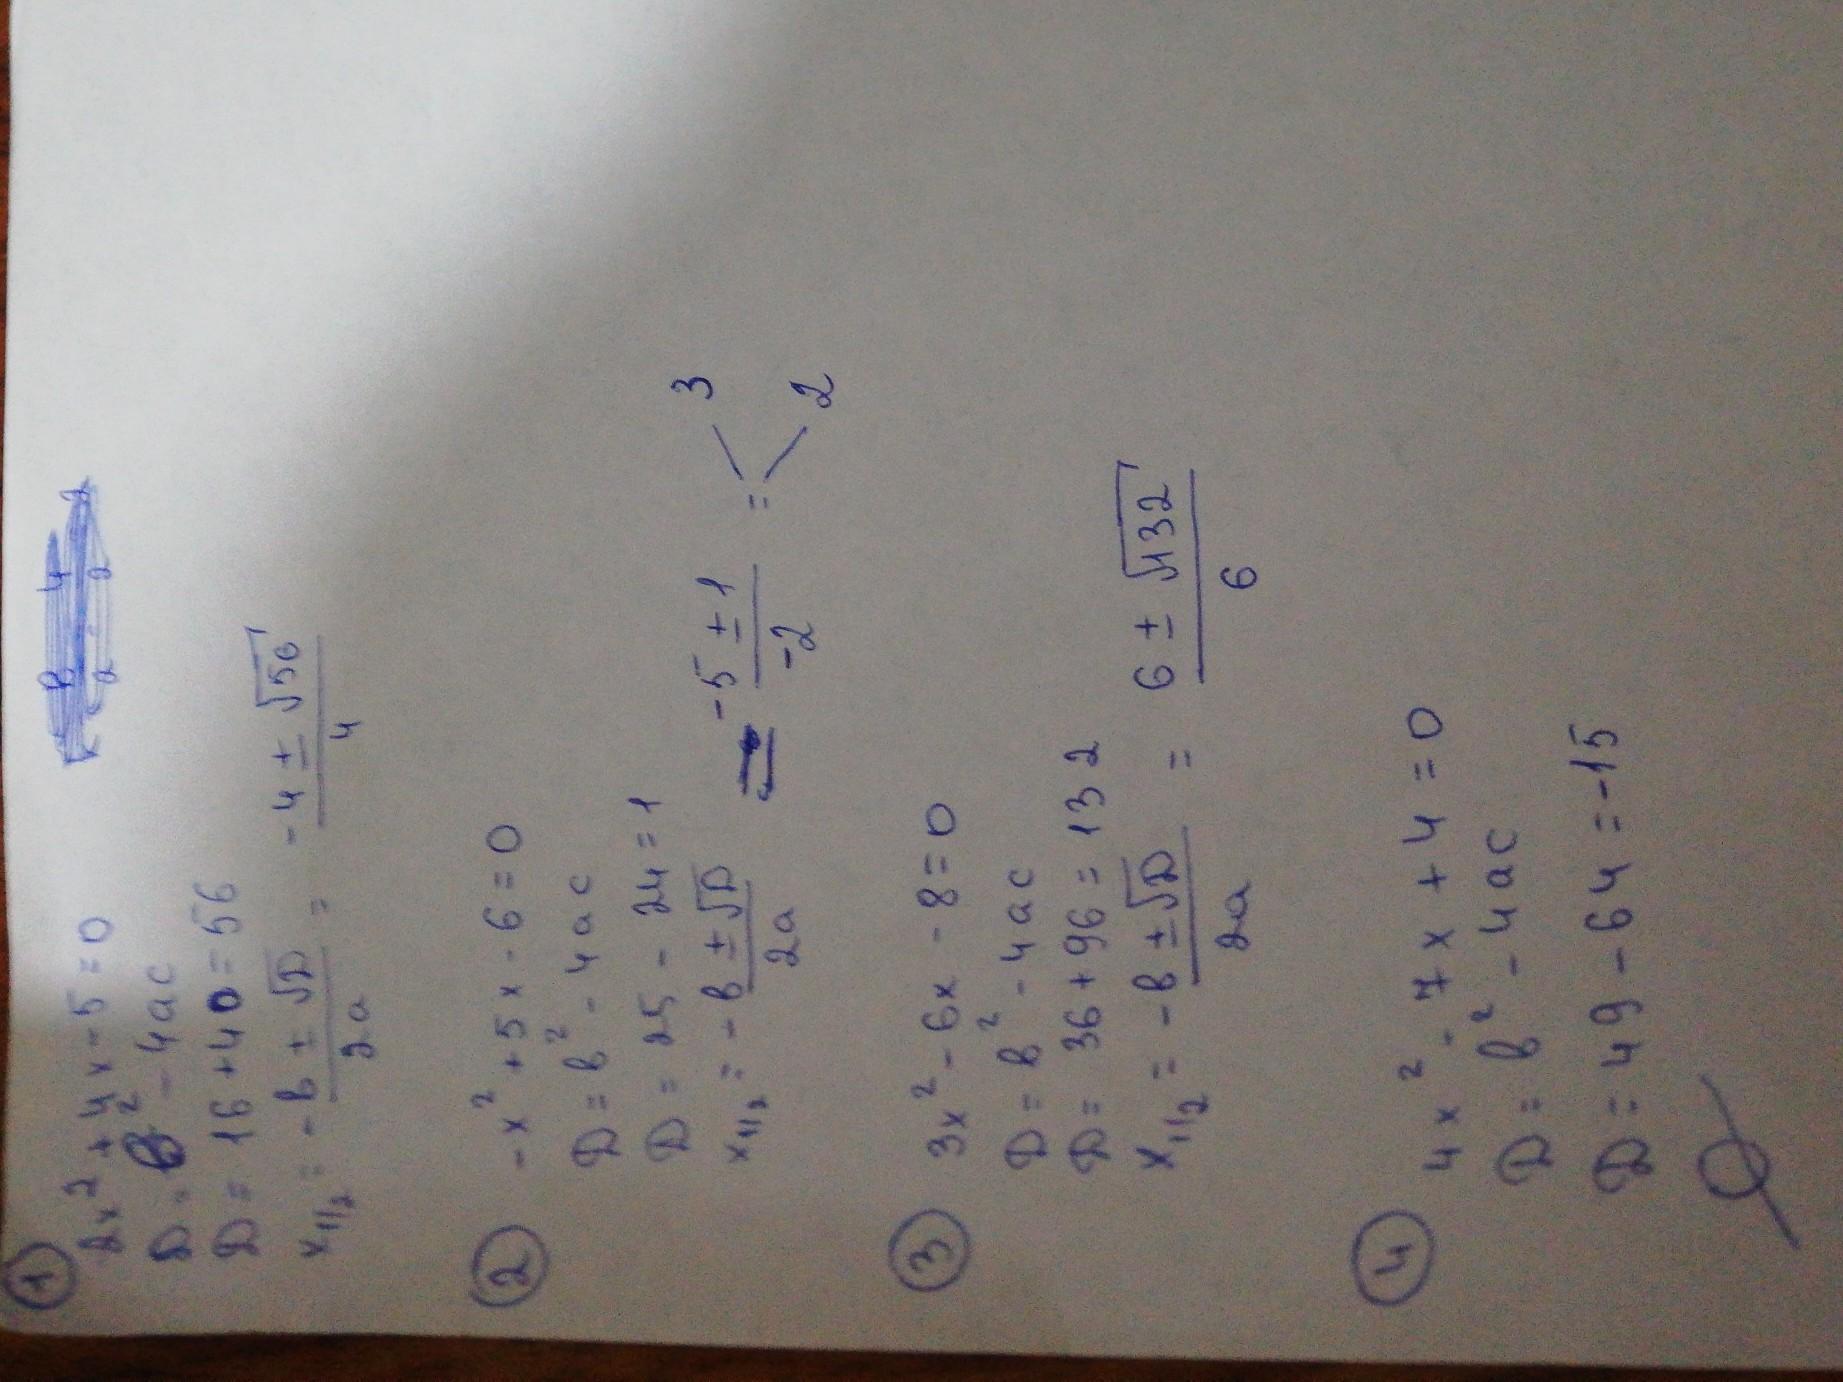 1
2x² + 4x - 5 = 0
D = b² - 4ac
D = 16 + 40 = 56
x₁/₂ = -b ± √D / 2a = -4 ± √56 / 4
2
-x² + 5x - 6 = 0
D = b² - 4ac
D = 25 - 24 = 1
x₁/₂ = -b ± √D / 2a = -5 ± 1 / -2 = 3 2
3
3x² - 6x - 8 = 0
D = b² - 4ac
D = 36 + 96 = 132
x₁/₂ = -b ± √D / 2a = 6 ± √132 / 6
4
4x² - 7x + 4 = 0
D = b² - 4ac
D = 49 - 64 = -15
∅